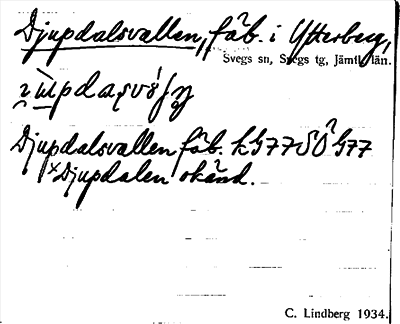 Djupdalsvallen, fäb. i Ytterberg,
Svegs sn, Svegs tg, Jämtl. län.
Djupdalsvallen fäb. k G77 SÖ G77
×Djupdalen okänd.
C. Lindberg 1934.